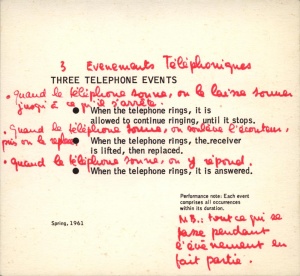 3 Evenements Téléphoniques
THREE TELEPHONE EVENTS
• quand le téléphone sonne, on le laisse sonner
jusqu'à ce qu'il s'arrête.
● When the telephone rings, it is
allowed to continue ringing, until it stops.
• Quand le téléphone sonne, on soulève l'écouteur,
puis on le replace
● When the telephone rings, the receiver
is lifted, then replaced.
• quand le téléphone sonne, on y répond.
● When the telephone rings, it is answered.
Performance note: Each event
comprises all occurrences
within its duration.
Spring, 1961
NB.: tout ce qui se
passe pendant
l'évènement en
fait partie.